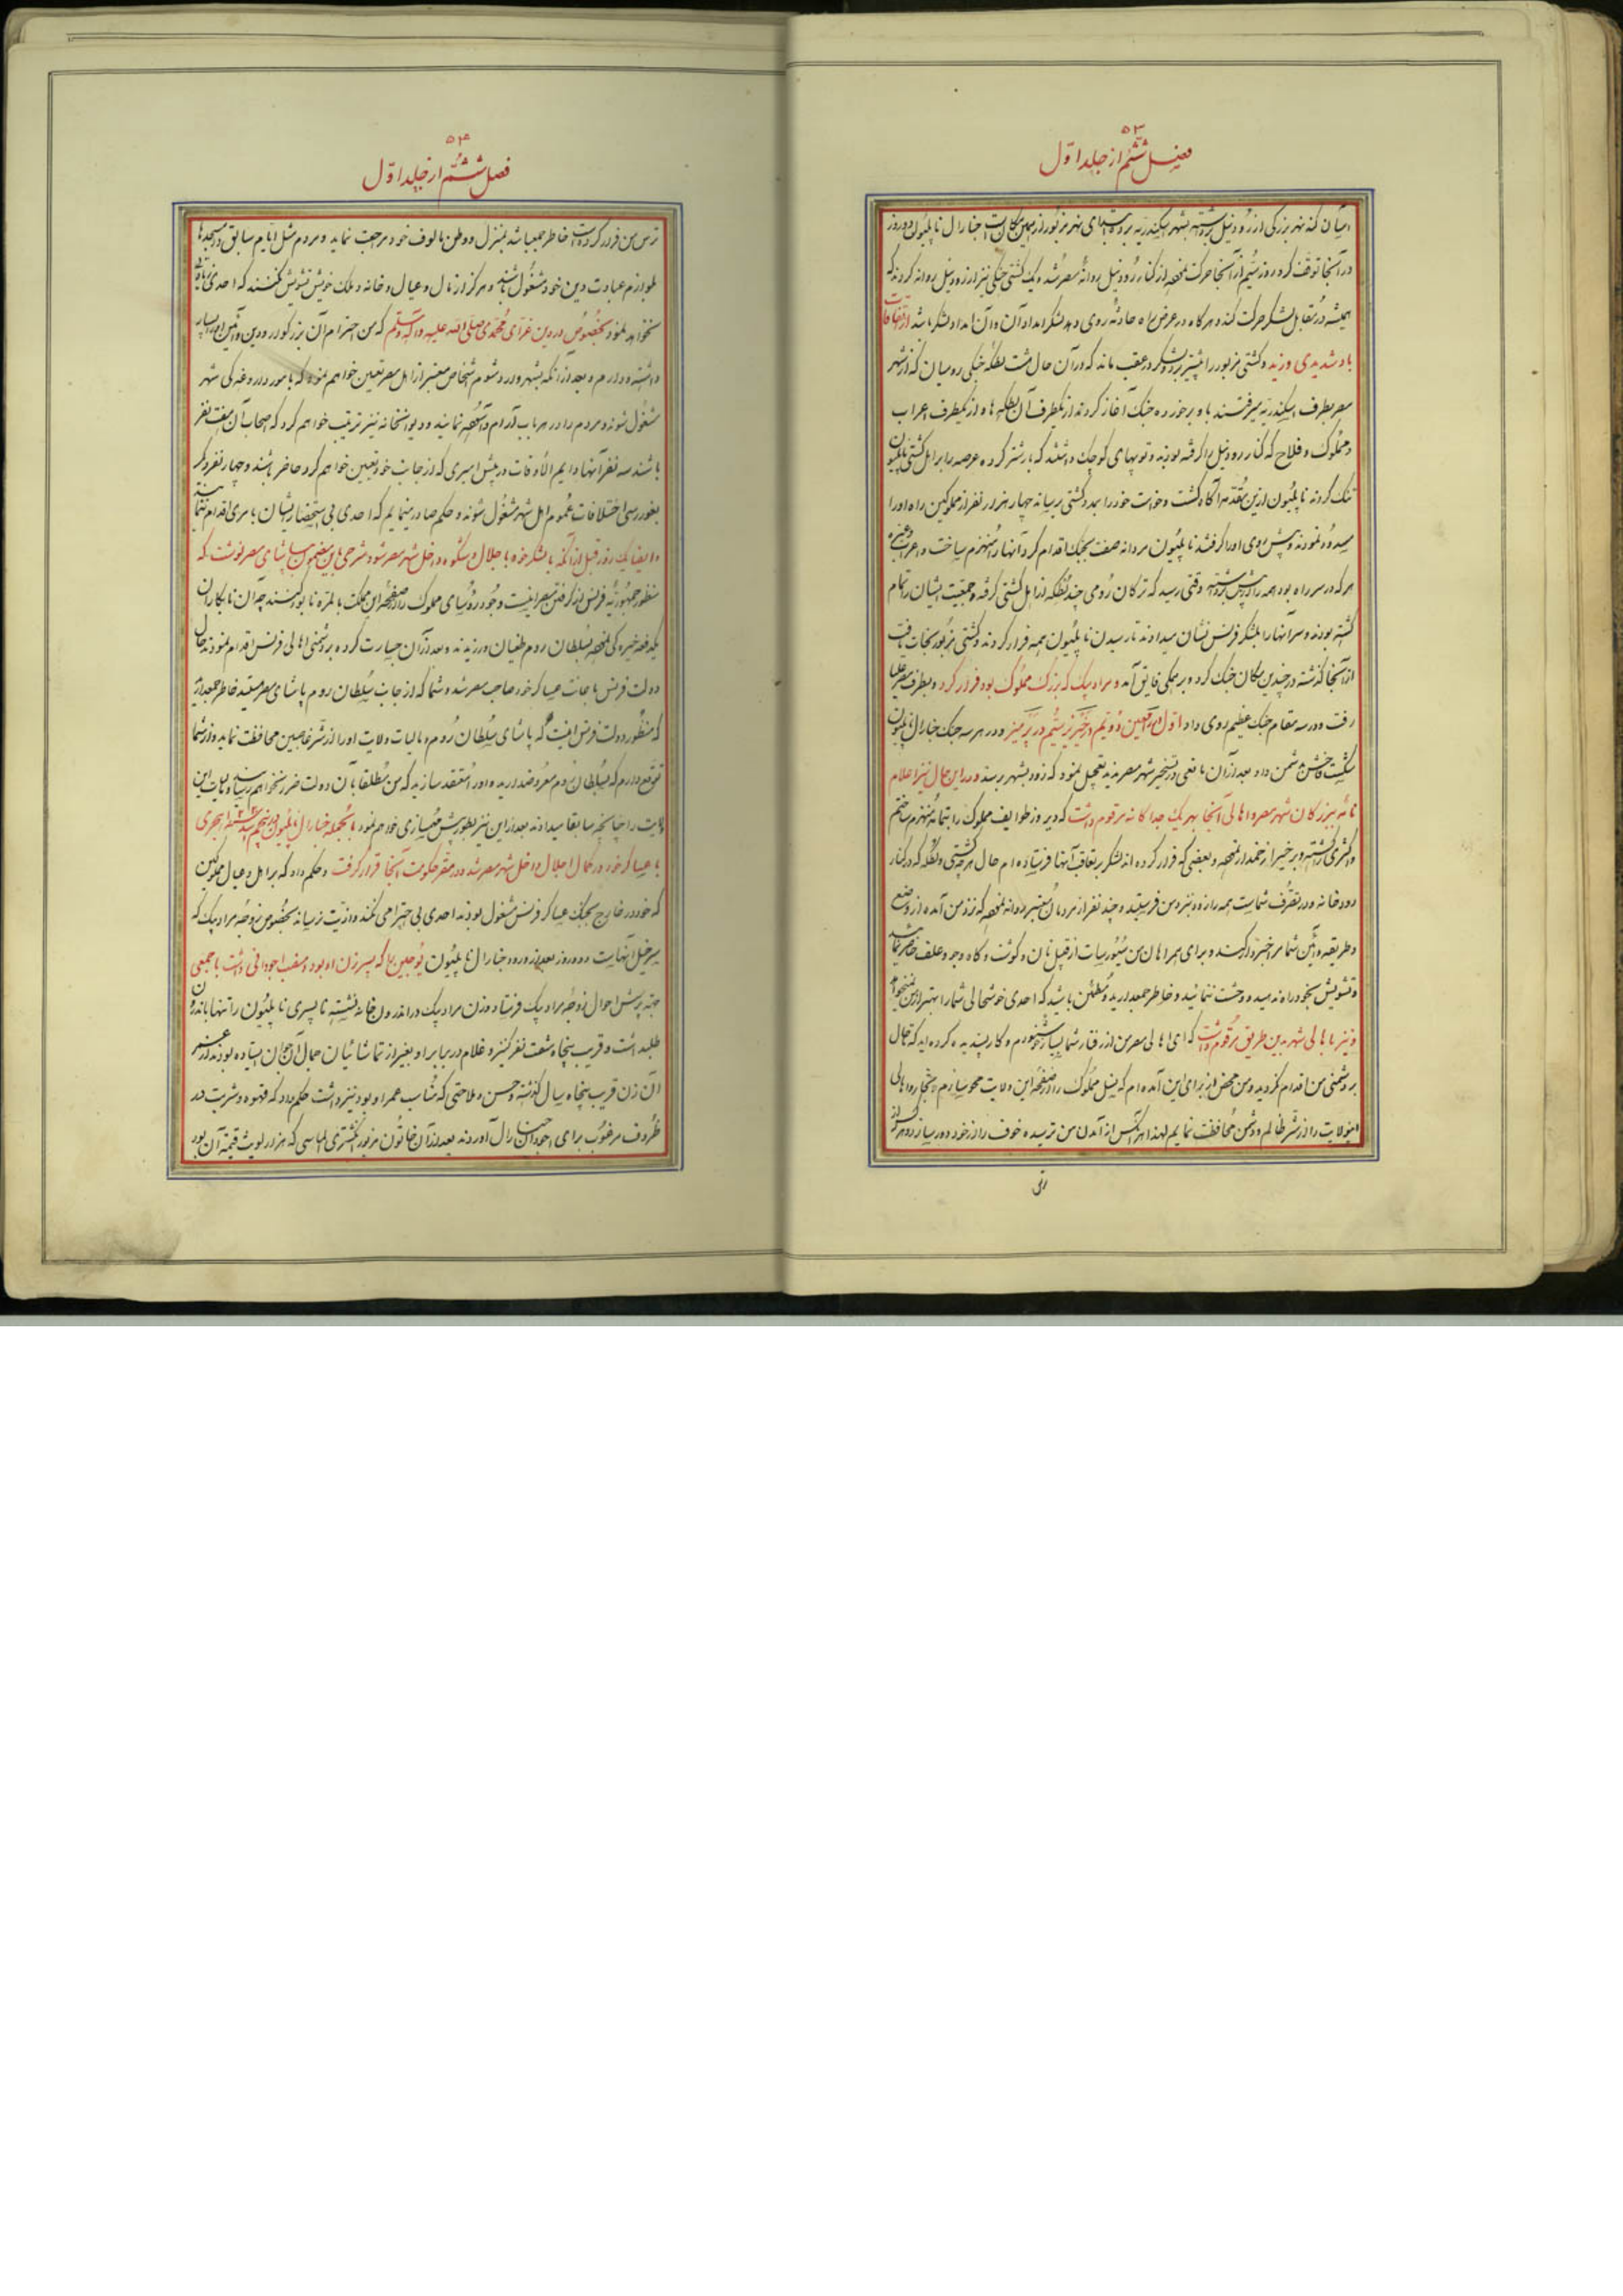 ۵۳
فصل ششم از جلد اول
ایشان که نهر بزرگی از رود نیل برداشته بشهر اسکندریه برده بنای نهر مزبور از همین مکان است جنارال ناپلیون دو روز
در آنجا توقف کرد و روز سیم از آنجا حرکت نموده از کنار رود نیل روانه مصر شد و یک کشتی جنگی نیز از رود نیل روانه کردند که
همیشه در مقابل لشکر حرکت کند و هرگاه در عرض راه حادثه روی دهد لشکر امداد آن و آن امداد لشکر باشد از اتفاقات
باد شدیدی وزید و کشتی مزبور را پیشتر برد و لشکر در عقب ماند که در آن حال هشت لطکه جنگی رومیان که از شهر
مصر بطرف اسکندریه میرفتند باو برخورده جنگ آغاز کردند از یکطرف آن لطکه ها و از یکطرف اعراب
و مملوک و فلاح که کنار رود نیل را گرفته بودند و توپهای کوچک داشتند که بار شتر کرده عرصه را بر اهل کشتی ناپلیون
تنگ کردند ناپلیون ازین مقدمه آگاه گشت و خواست خود را بمدد کشتی برساند چهار هزار نفر از مملوکین راه او را
سد نمودند و پیش روی او را گرفتند ناپلیون مردانه صفت بجنگ اقدام کرد آنها را منهزم ساخت و اعراب و غیره
هر که در سر راه بود همه را از پیش برداشته وقتی رسید که ترکان رومی چند لطکه از اهل کشتی گرفته و جمعیت ایشان را تمام
کشته بودند و سر آنها را بلشکر فرنس نشان میدادند تا رسیدن ناپلیون همه فرار کردند و کشتی مزبور نجات یافت
از آنجا گذشته در چندین مکان جنگ کرد و بر همگی فایق آمد و مراد بیک که بزرگ مملوک بود فرار کرد و بطرف مصر علیا
رفت و در سه مقام جنگ عظیم روی داد اول در دویم در سیم در و در هر سه جنگ جنارال ناپلیون
شکست فاحش بدشمن داد بعد از آن مانعی در تسخیر شهر مصر ندید تعجیل نمود که زود بشهر برسد و در این حال نیز اعلام
نامه ببزرگان شهر مصر و اهالی آنجا بهر یک جداگانه مرقوم داشت که دیروز طوایف مملوک را بتمامه منهزم ساختم
و اکثری کشته و برخی را زخمدار نموده و بعضی که فرار کرده اند لشکر بتعاقب آنها فرستاده ام حال هر چه کشتی و لطکه که در کنار
رودخانه و در تصرف شماست همه را زود بنزد من فرستید و چند نفر از مردمان معتبر روانه نموده که نزد من آمده از وضع
و طریقه و آئین شما مرا خبردار کنند و برای همراهان من سیورسات از قبیل نان و گوشت و کاه و جو و علف حاضر نمائید
و تشویش بخود راه ندهید و وحشت ننمائید و خاطر جمع دارید و مطمئن باشید که احدی خوشحالی شما را بهتر از من نمیخواهد
و نیز باهالی شهر بدین طریق مرقوم داشت که ای اهالی مصر من از رفتار شما بسیار خوشنودم و کار پسندیده کرده اید که تا حال
بر دشمنی من اقدام نکردید و من محض از برای این آمده ام که نسل مملوک را از صفحه این ولایت محو سازم و تجار و اهالی
اینولایت را از شر ظالم و دشمن محافظت نمایم لهذا هر کس از آمدن من ترسیده خوف را از خود دور سازد و هر کس از
۵۴
فصل ششم از جلد اول
ترس من فرار کرده است خاطر جمع باشد بمنزل و وطن مالوف خود مراجعت نماید و مردم مثل ایام سابق در مسجدها
بلوازم عبادت دین خود مشغول باشند و هرگز از مال و عیال و خانه و ملک خویش تشویش نکنند که احدی
نخواهد نمود بخصوص در دین غرای محمدی صلی الله علیه و آله و سلم که من احترام آن بزرگوار و دین و آئین او را بسیار
داشته و دارم و بعد از آنکه بشهر وارد شوم اشخاص معتبر از اهل مصر تعیین خواهم نمود که بامور داروغه گی شهر
مشغول شوند و مردم را در هر باب آرام و آسوده نمایند و دیوانخانه نیز ترتیب خواهم کرد که اصحاب آن هفت نفر
باشند سه نفر آنها دایم الاوقات در پیش امیری که از جانب خود تعیین خواهم کرد حاضر باشند و چهار نفر دیگر
بغوررسی اختلافات عموم اهل شهر مشغول شوند و حکم صادر مینمایم که احدی بی استحضار ایشان بامری اقدام ننماید
و ایضا یک روز قبل از آنکه با لشکر خود باجلال و شکوه داخل شهر مصر شود شرحی باین مضمون بپاشای مصر نوشت که
منظور جمهوریه فرنس از گرفتن مصر اینست وجود رؤسای مملوک را از صفحه این مملکت بالمره نابود کنند چه آن نابکاران
یکدفعه خیره گی نموده بسلطان روم طغیان ورزیدند و بعد از آن جسارت کرده بر دشمنی اهالی فرنس اقدام نمودند حال
دولت فرنس باعانت عساکر خود صاحب مصر شد و شما که از جانب سلطان روم پاشای مصر هستید خاطر جمع دارید
که منظور دولت فرنس اینست که پاشای سلطان روم و مالیات ولایت او را از شر غاصبین محافظت نماید و از شما
توقع دارم که بسلطان روم معروض دارید و او را معتقد سازید که من مطلقا بآن دولت ضرر نخواهم رسانید و مالیات این
ولایت را چنانچه سابقا میدادند بعد از این نیز بطور پیش خواهم نمود بالجمله جنارال ناپلیون روز پنجم هجری
با عساکر خود در کمال اجلال داخل شهر مصر شد و در مقر حکومت آنجا قرار گرفت و حکم داد که بر اهل و عیال مملوکین
که خود در خارج بجنگ عساکر فرنس مشغول بودند احدی بی احترامی نکند و اذیت نرساند بخصوص زوجه مراد بیک که
سرخیل آنهاست و دو روز بعد از ورود جنارال ناپلیون یوجین را که پسر زن او بود و منصب اجودانی داشت با جمعی
بجهت پرسش احوال زوجه مراد بیک فرستاد و زن مراد بیک در اندرون خانه نشسته تا پسری ناپلیون را تنها باندرون
طلبداشت و قریب پنجاه شصت نفر کنیز و غلام در برابر او بغیر از تماشائیان جمال آن جوان ایستاده بودند از عمر
آن زن قریب پنجاه سال گذشته و حسن و ملاحتی که مناسب عمر او بود نیز داشت حکم داد که قهوه و شربت در
ظروف مرغوب برای اجودان جنارال آوردند بعد از آن خاتون مزبور انگشتری الماسی که هزار لویث قیمت آن بود